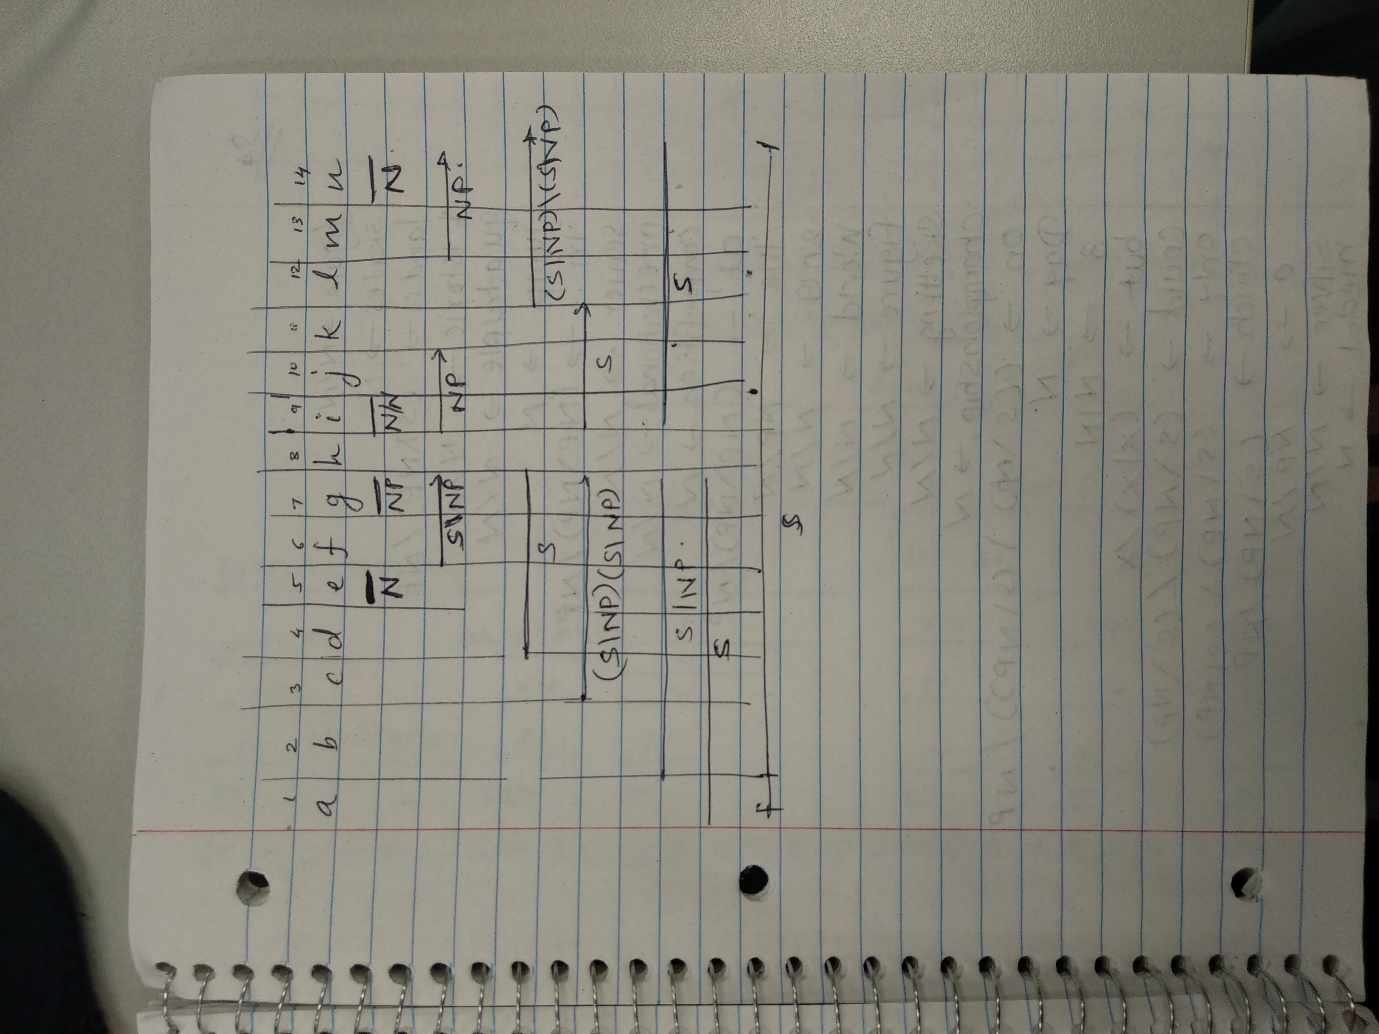 1 2 3 4 5 6 7 8 9 10 11 12 13 14
a b c d e f g h i j k l m n
N NP N/N N
S\NP NP NP.
S (S\NP)\(S\NP)
(S\NP)(S\NP) S
S\NP. S
S
S